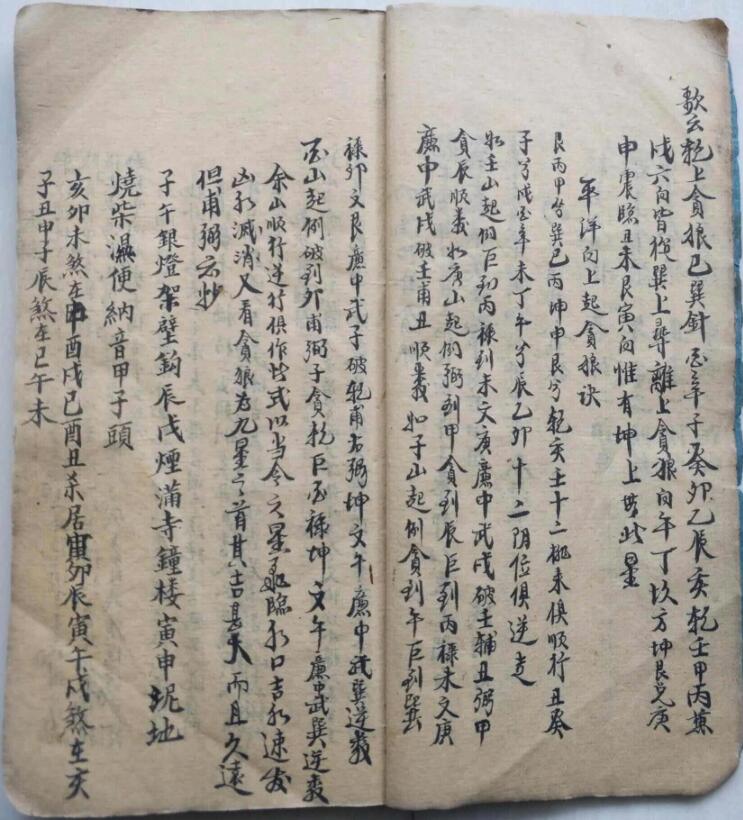 歌云乾上貪狼巳巽針酉辛子癸卯乙辰亥乾壬甲丙兼
戌六向皆從巽上尋離上貪狼向午丁坎方坤艮兌庚
申震臨丑未艮寅向惟有坤上無此星
平洋向上起貪狼訣
艮丙甲兮巽巳丙坤申艮兮乾亥壬十二桃来俱順行丑癸
子兮戌酉辛未丁午兮辰乙卯十二阴位俱逆走
如壬山起例巨到丙禄到未文庚廉中武戌破壬輔丑弼甲
貪辰順義如庚山起例弼到甲貪到辰巨到丙禄未文庚
廉中武戌破壬甫丑順義如子山起例貪到午巨到巽
禄卯文艮廉中武子破乾甫酉弼坤文午廉中武巽逆義
酉山起例破到卯甫弼子貪乾巨酉禄坤文午廉中武巽逆義
余山順行逆行俱作此式以当令之星飛臨水口吉水速發
凶水減消又看貪狼为九星之首其吉最大而且久遠
但甫弼云妙
子午銀燈架壁鈎辰戌煙蒲寺鐘楼寅申坭地
燒柴濕便納音甲子頭
亥卯未煞在申酉戌巳酉丑杀居寅卯辰寅午戌煞在亥
子丑申子辰煞在巳午未